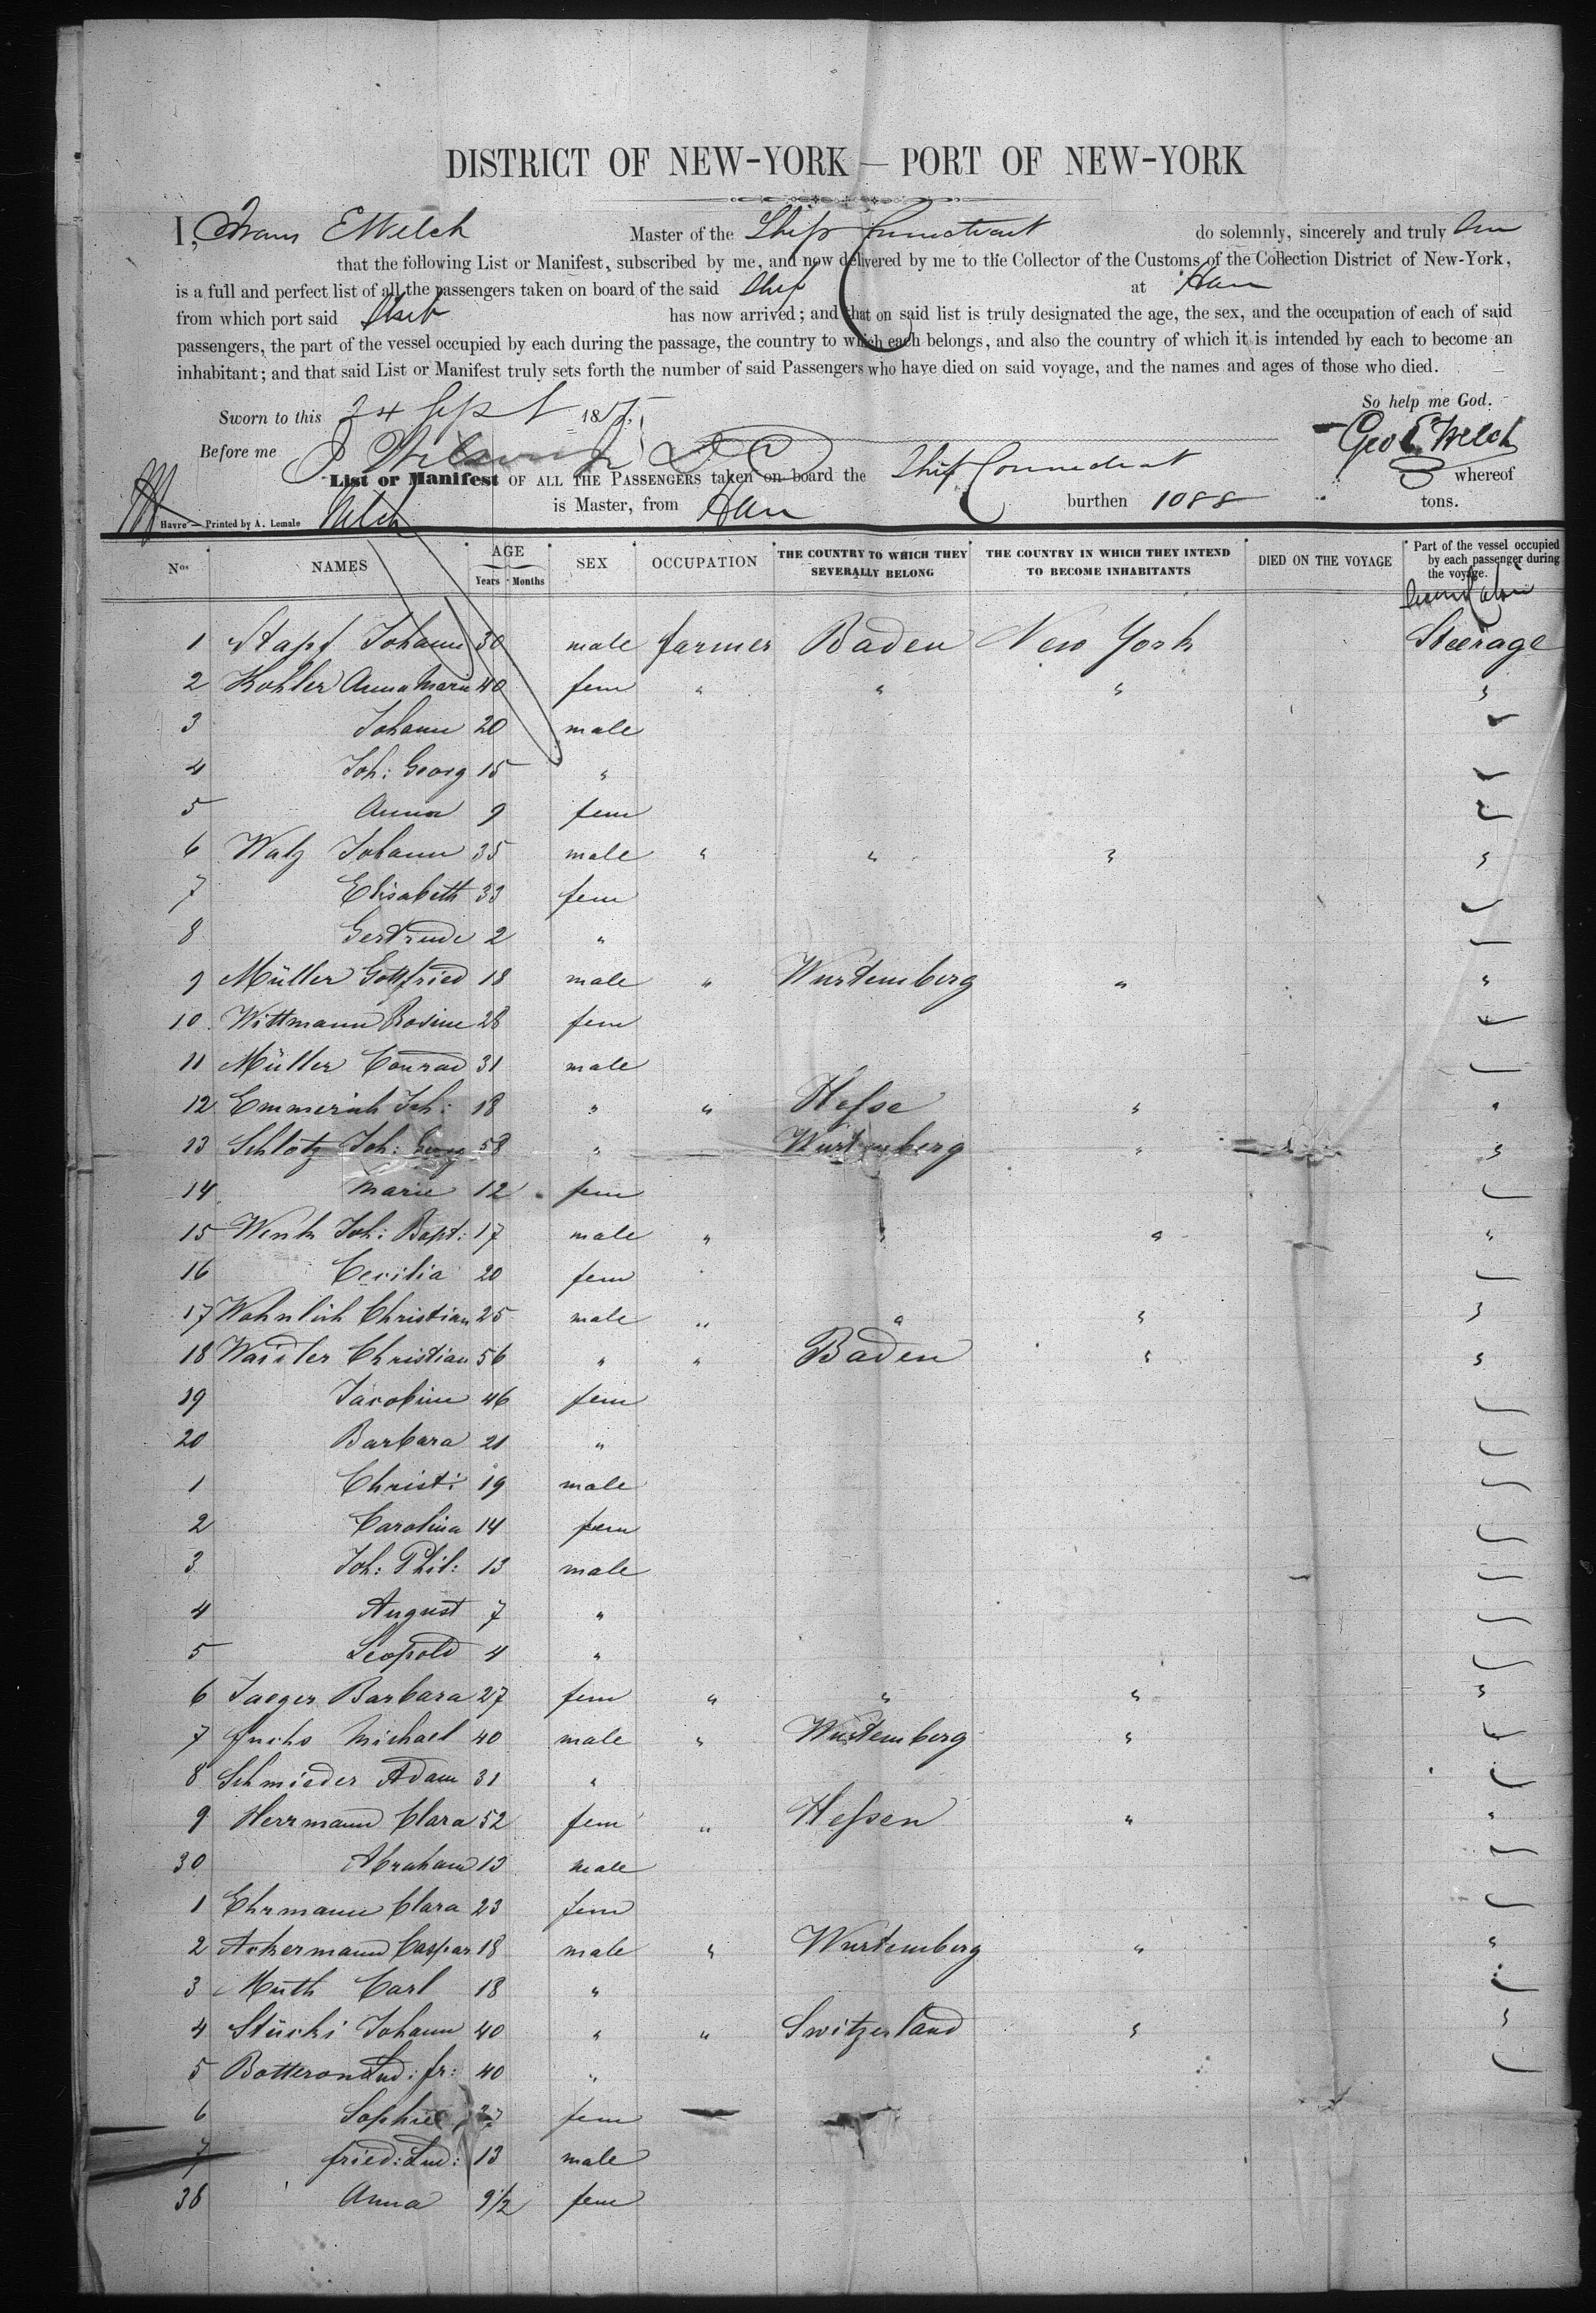 DISTRICT OF NEW-YORK — PORT OF NEW-YORK
I, E Welch Master of the Ship Connecticut do solemnly, sincerely and truly
that the following List or Manifest, subscribed by me, and now delivered by me to the Collector of the Customs of the Collection District of New-York,
is a full and perfect list of all the passengers taken on board of the said Ship at Havre
from which port said Ship has now arrived; and that on said list is truly designated the age, the sex, and the occupation of each of said
passengers, the part of the vessel occupied by each during the passage, the country to which each belongs, and also the country of which it is intended by each to become an
inhabitant; and that said List or Manifest truly sets forth the number of said Passengers who have died on said voyage, and the names and ages of those who died.
So help me God.
Sworn to this 24 Sept 185
Geo E Welch
Before me
List or Manifest OF ALL THE PASSENGERS taken on board the Ship Connecticut whereof
Welch is Master, from Havre burthen 1088 tons.
Havre — Printed by A. Lemale
Nos NAMES AGE Years Months SEX OCCUPATION THE COUNTRY TO WHICH THEY SEVERALLY BELONG THE COUNTRY IN WHICH THEY INTEND TO BECOME INHABITANTS DIED ON THE VOYAGE Part of the vessel occupied by each passenger during the voyage.
1 Stapf Johann 30 male farmer Baden New York Steerage
2 Kohler Anna Maria 40 fem " " " "
3 Johann 20 male
4 Joh: Georg 15 "
5 Anna 9 fem
6 Walz Johann 35 male " " " "
7 Elisabeth 33 fem
8 Gertrude 2 "
9 Müller Gottfried 18 male " Wurtemberg " "
10 Wittmann Rosine 28 fem
11 Müller Conrad 31 male
12 Emmerich Joh: 18 " " Hesse " "
13 Schlotz Joh: Georg 58 " Wurtemberg " "
14 Marie 12 fem
15 Wenk Joh: Bapt: 17 male " " " "
16 Cecilia 20 fem
17 Wohnlich Christian 25 male " " " "
18 Waidler Christian 56 " " Baden " "
19 Jacobine 46 fem
20 Barbara 21 "
1 Christ: 19 male
2 Carolina 14 fem
3 Joh: Phil: 13 male
4 August 7 "
5 Leopold 4 "
6 Jaeger Barbara 27 fem " " " "
7 Fuchs Michael 40 male " Wurtemberg "
8 Schmieder Adam 31 "
9 Herrmann Clara 52 fem " Hessen " "
30 Abraham 13 male
1 Ehrmann Clara 23 fem
2 Ackermann Caspar 18 male " Wurtemberg " "
3 Muth Carl 18 "
4 Stücki Johann 40 " " Switzerland " "
5 Botteron Lud: fr: 40 "
6 Sophie 27 fem
7 fried: Lud: 13 male
38 Anna 9 1/2 fem